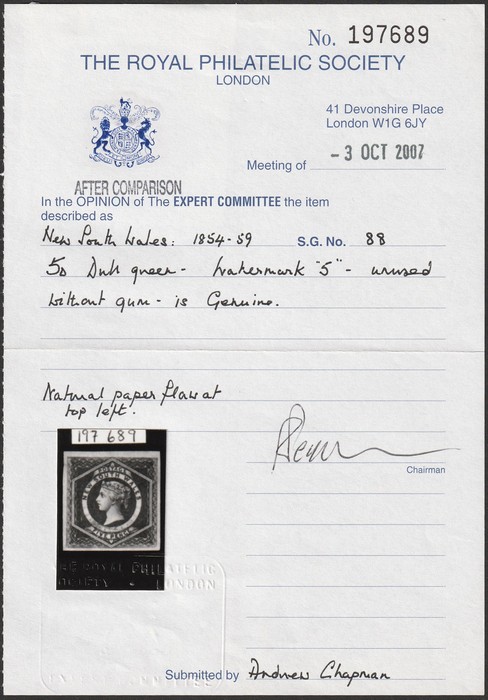 No. 197689
THE ROYAL PHILATELIC SOCIETY
LONDON
41 Devonshire Place
London W1G 6JY
Meeting of - 3 OCT 2007
AFTER COMPARISON
In the OPINION of The EXPERT COMMITTEE the item
described as
New South Wales: 1854-59 S.G. No. 88
5d Dull green - Watermark "5" - unused
without gum - is Genuine.
Natural paper flaw at
top left.
197 689
Chairman
POSTAGE
NEW SOUTH WALES
FIVE PENCE
THE ROYAL PHILATELIC
SOCIETY - LONDON
Submitted by Andrew Chapman